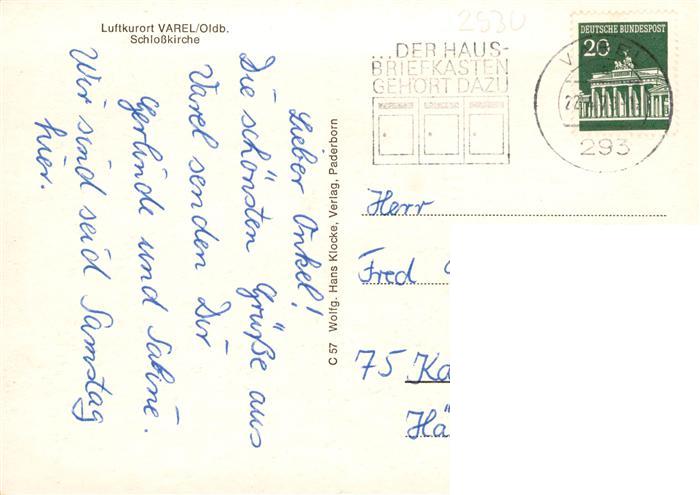 Luftkurort VAREL/Oldb.
Schloßkirche
2930
...DER HAUS-
BRIEFKASTEN
GEHÖRT DAZU
DEUTSCHE BUNDESPOST
20
293
Lieber Onkel!
Die schönsten Grüße aus
Varel senden Dir
Gerlinde und Sabine.
Wir sind seid Samstag
hier.
C 57 Wolfg. Hans Klocke, Verlag, Paderborn
Herr
Fred
75 Ka
Hä